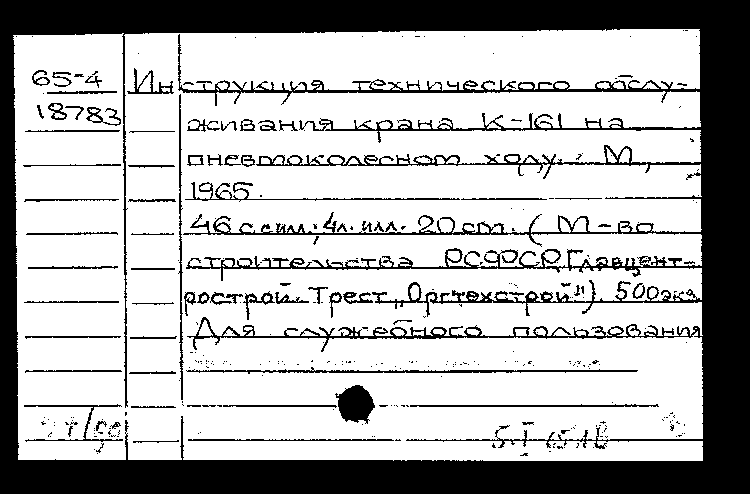 65-4 Инструкция технического обслу-
18783 живания крана К-161 на
пневмоколесном ходу. М,
1965.
46 с. с илл.; 4 л. илл. 20 cm. ( М-во
строительства РСФСР. Главцент-
рострой. Трест „Оргтехстрой"). 500 экз.
Для служебного пользования